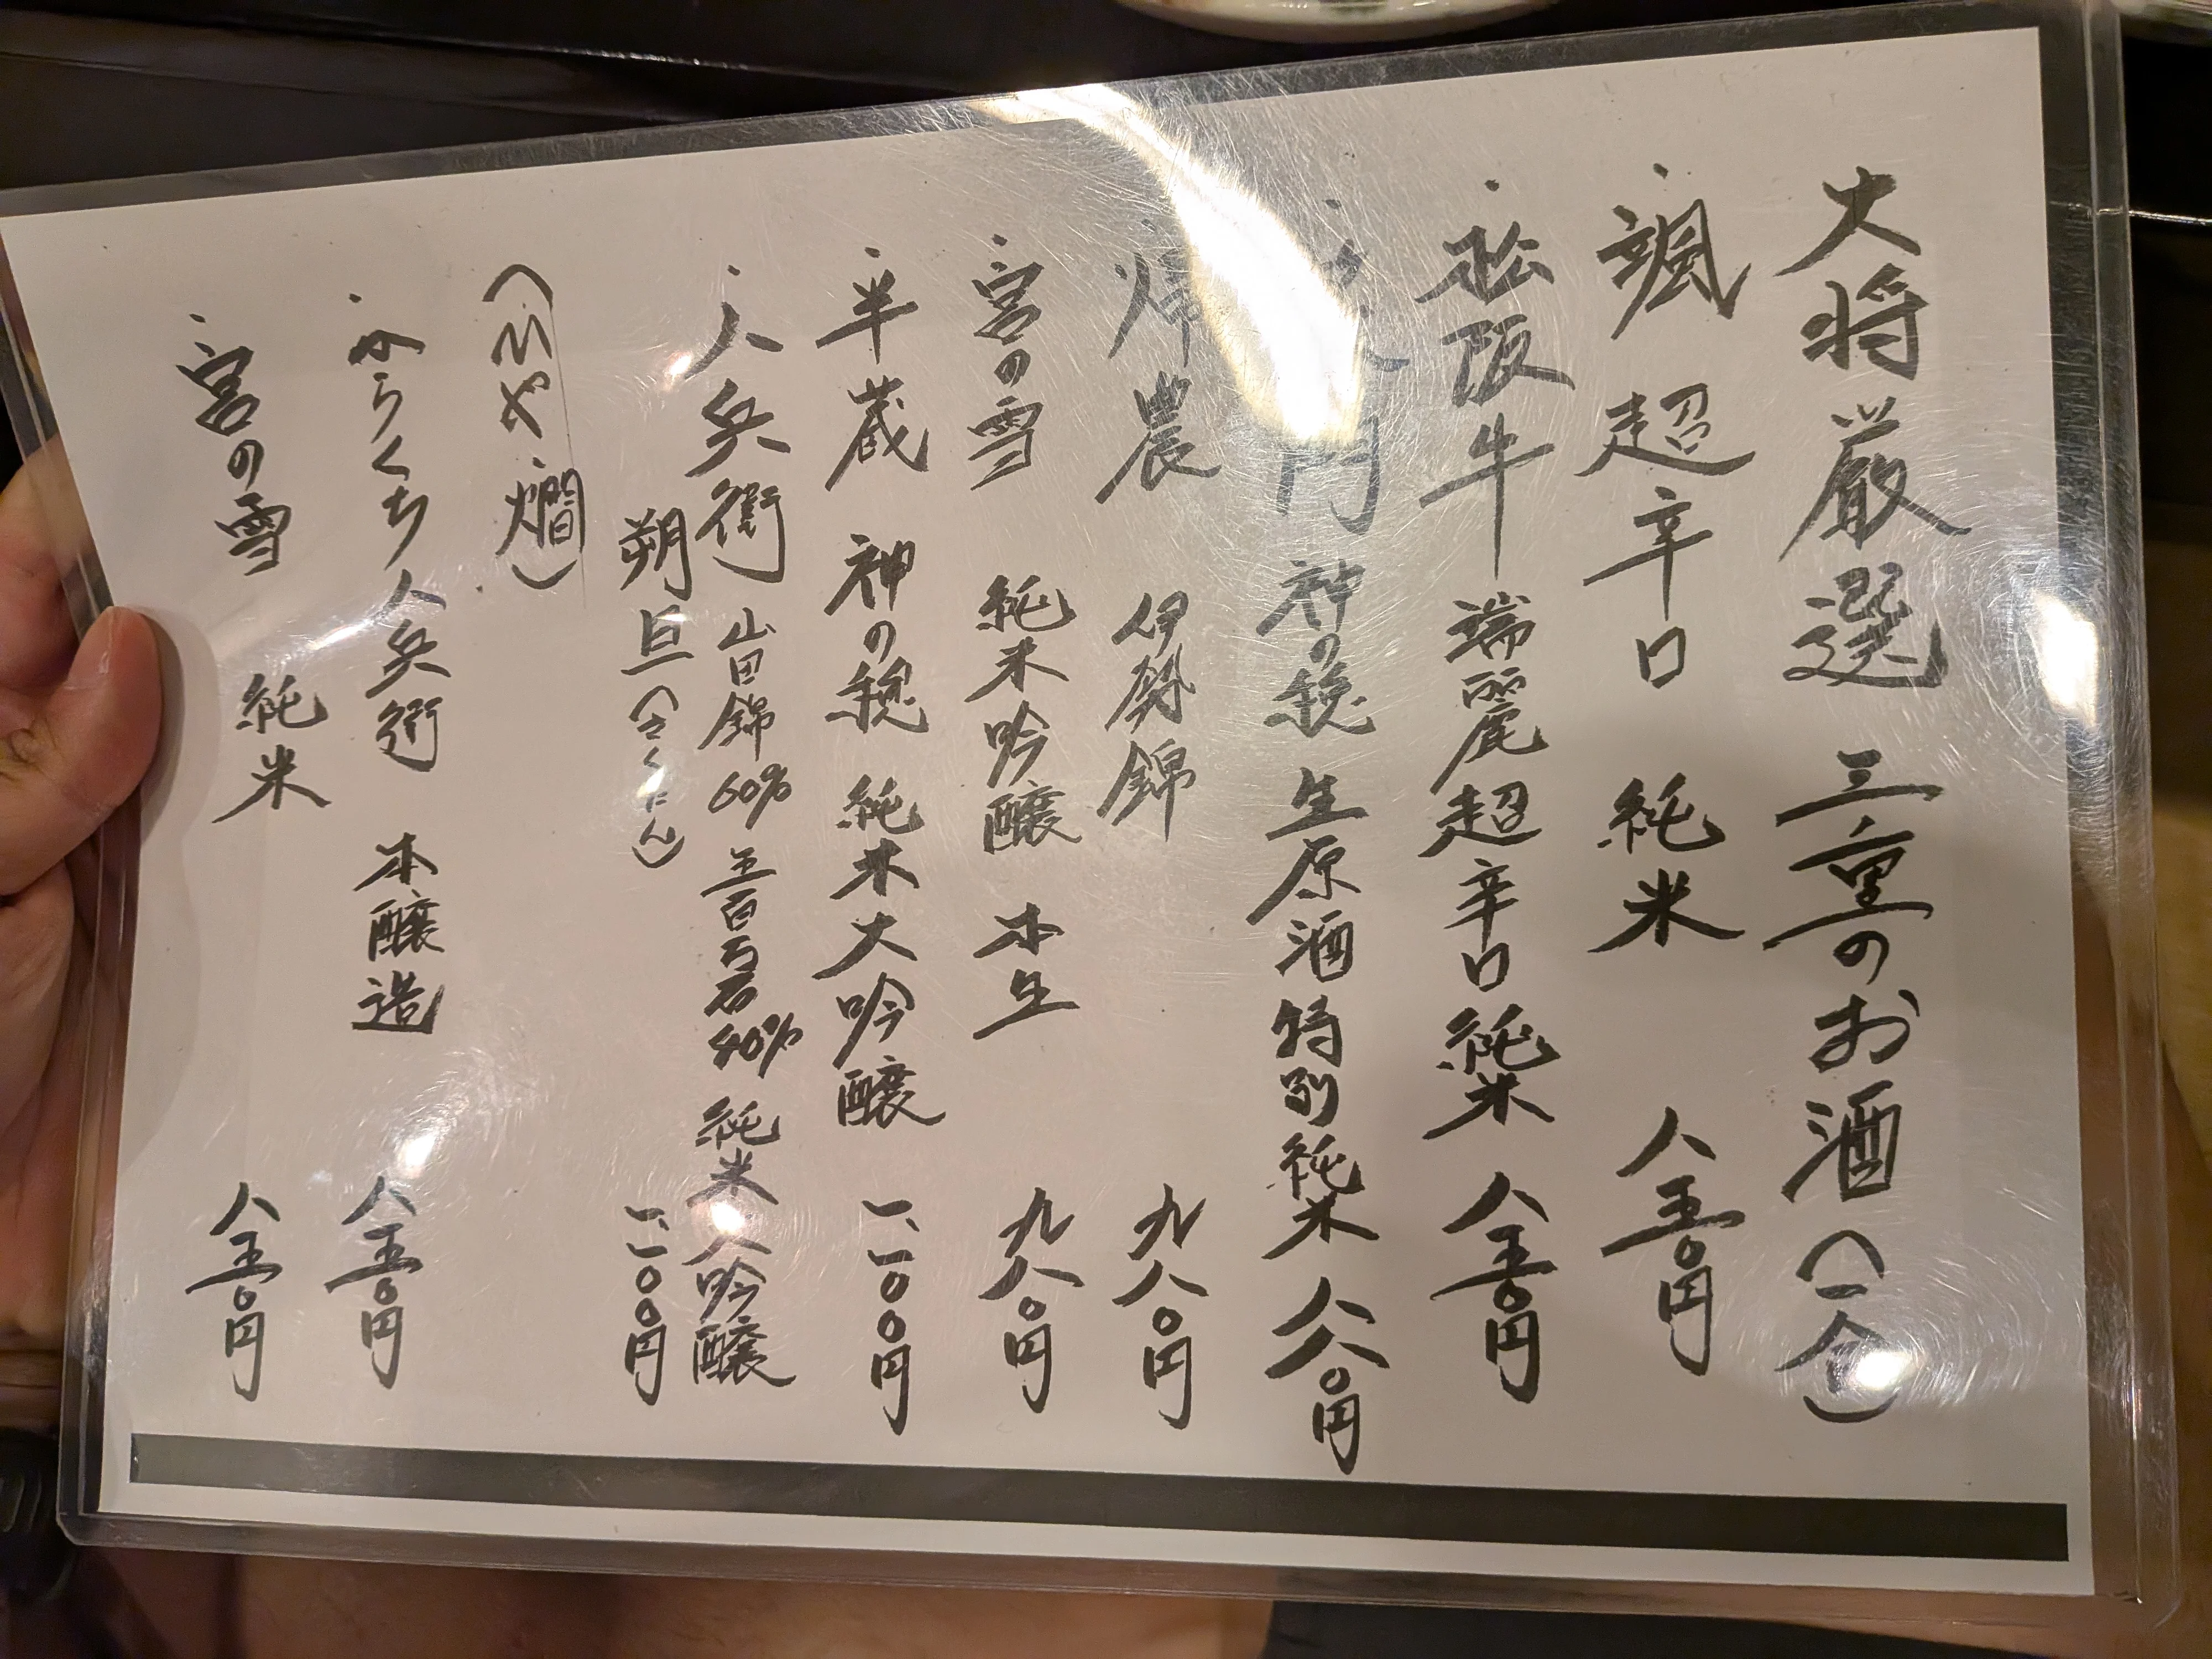 大将厳選 三重のお酒(一合)
・颯 超辛口 純米 八五〇円
・松阪牛 端麗超辛口純米 八五〇円
・門 神の穂 生原酒 特別純米 八八〇円
・帰農 伊勢錦 九八〇円
・宮の雪 純米吟醸 本生 九八〇円
・半蔵 神の穂 純米大吟醸 一、一〇〇円
・八兵衛 山田錦60% 五百万石40% 純米大吟醸
朔旦(さくたん) 一、一〇〇円
(ひや・燗)
・からくち八兵衛 本醸造 八五〇円
・宮の雪 純米 八五〇円